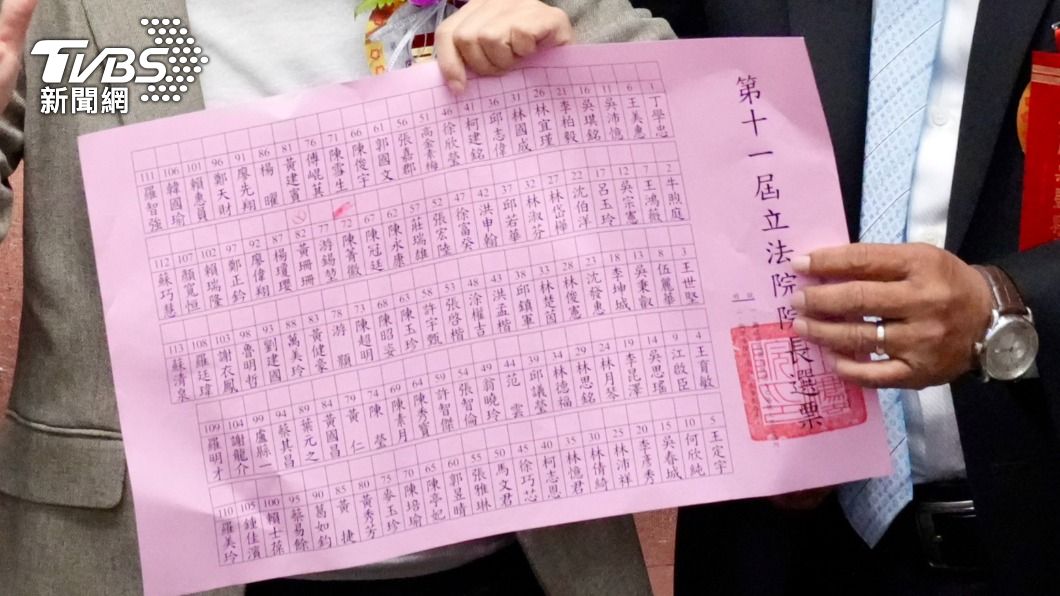 TVBS
新聞網
第十一屆立法院院長選票
1 丁學忠
2 牛煦庭
3 王世堅
4 王育敏
5 王定宇
6 王美惠
7 王鴻薇
8 伍麗華
9 江啟臣
10 何欣純
11 吳沛憶
12 吳宗憲
13 吳秉叡
14 吳思瑤
15 吳春城
16 吳琪銘
17 呂玉玲
18 李坤城
19 李昆澤
20 李彥秀
21 李柏毅
22 沈伯洋
23 沈發惠
24 林月琴
25 林沛祥
26 林宜瑾
27 林岱樺
28 林俊憲
29 林思銘
30 林倩綺
31 林國成
32 林淑芬
33 林楚茵
34 林德福
35 林憶君
36 邱志偉
37 邱若華
38 邱鎮軍
39 邱議瑩
40 柯志恩
41 柯建銘
42 洪申翰
43 洪孟楷
44 范雲
45 徐巧芯
46 徐欣瑩
47 徐富癸
48 涂權吉
49 翁曉玲
50 馬文君
51 高金素梅
52 張宏陸
53 張啓楷
54 張智倫
55 張雅琳
56 張嘉郡
57 莊瑞雄
58 許宇甄
59 許智傑
60 郭昱晴
61 郭國文
62 陳永康
63 陳玉珍
64 陳秀寳
65 陳亭妃
66 陳俊宇
67 陳冠廷
68 陳昭姿
69 陳素月
70 陳培瑜
71 陳雪生
72 陳菁徽
73 陳超明
74 陳瑩
75 麥玉珍
76 傅崐萁
77 游錫堃
78 游顥
79 黃仁
80 黃秀芳
81 黃建賓
82 黃珊珊
83 黃健豪
84 黃國昌
85 黃捷
86 楊曜
87 楊瓊瓔
88 萬美玲
89 葉元之
90 葛如鈞
91 廖先翔
92 廖偉翔
93 劉建國
94 蔡其昌
95 蔡易餘
96 鄭天財
97 鄭正鈐
98 魯明哲
99 盧縣一
100 賴士葆
101 賴惠員
102 賴瑞隆
103 謝衣鳳
104 謝龍介
105 鍾佳濱
106 韓國瑜
107 顏寬恒
108 羅廷瑋
109 羅明才
110 羅美玲
111 羅智強
112 蘇巧慧
113 蘇清泉